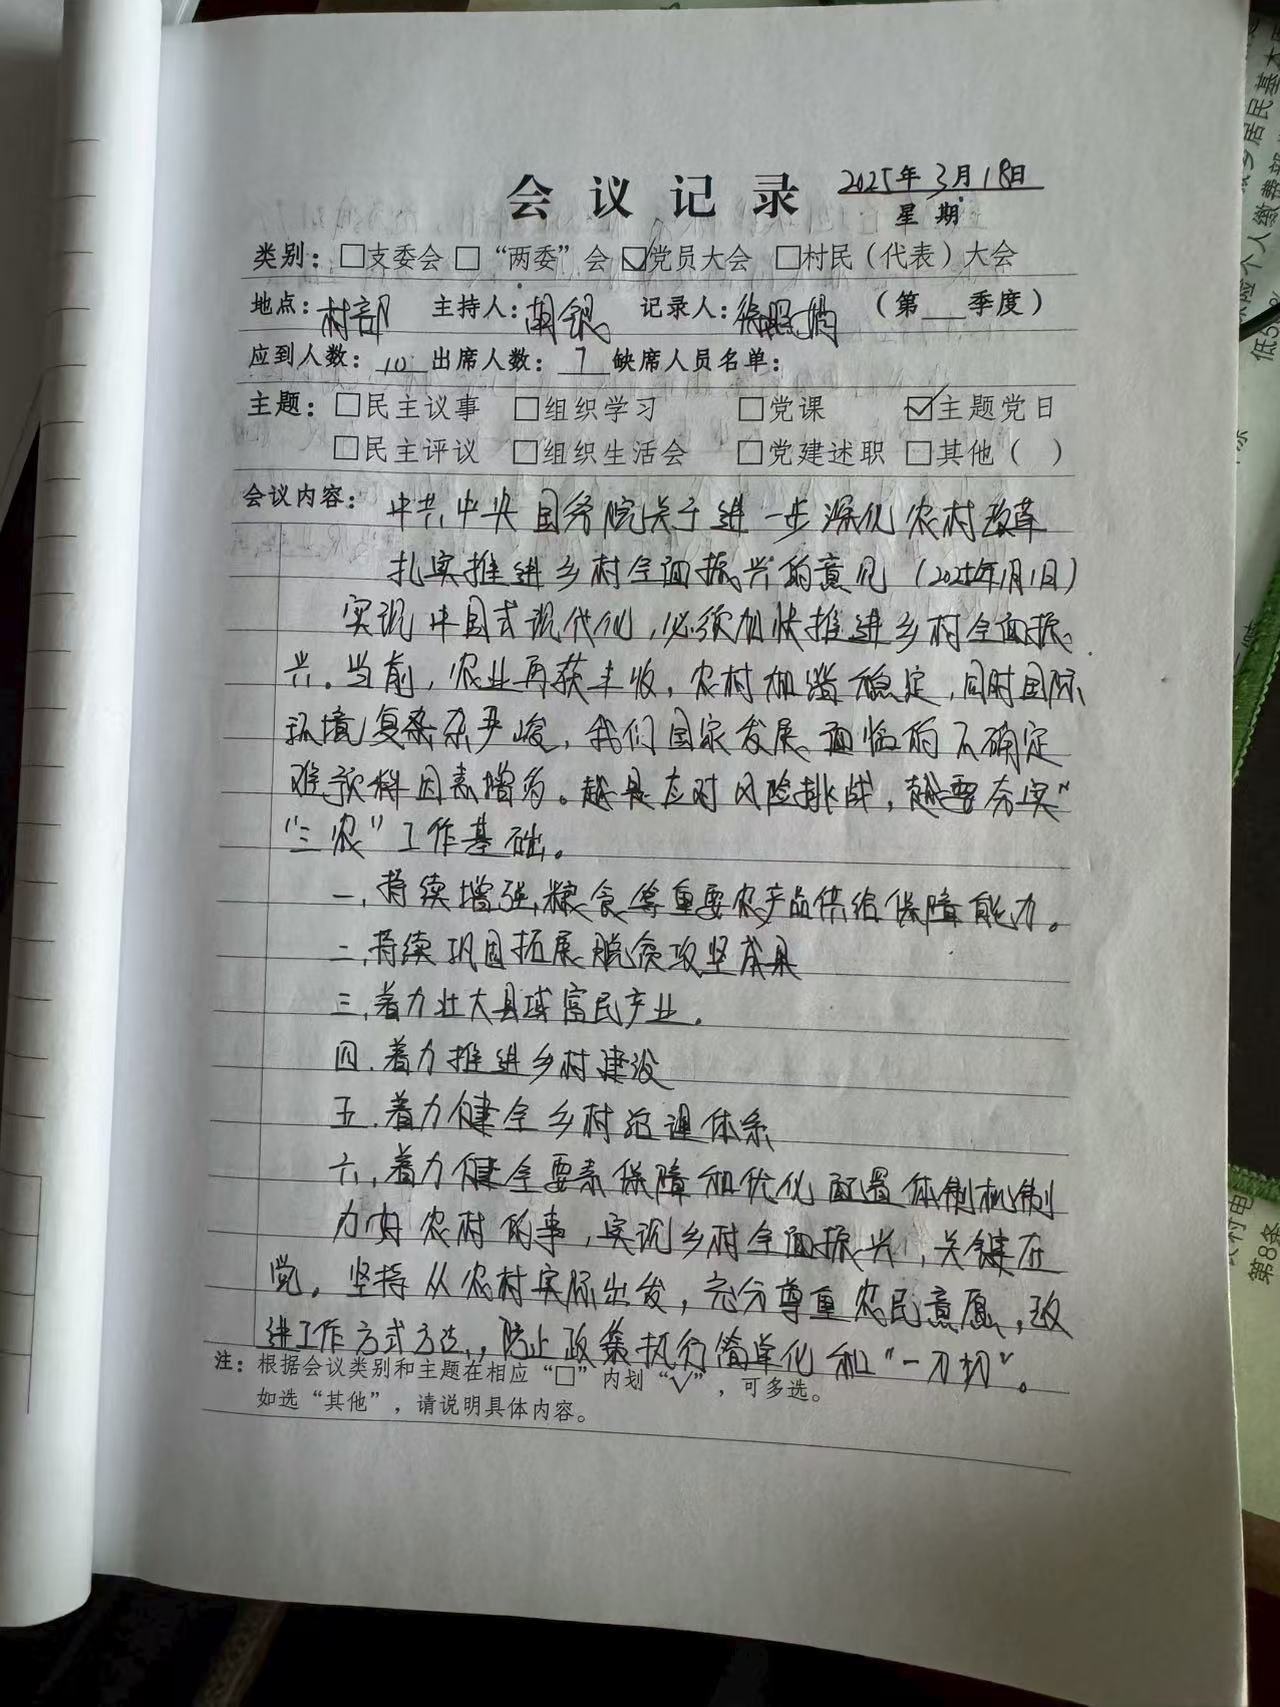 会议记录 2025年3月18日
星期
类别：□支委会 □“两委”会 ☑党员大会 □村民（代表）大会
地点：村部 主持人：胡银 记录人：徐 （第 季度）
应到人数：10 出席人数：7 缺席人员名单：
主题：□民主议事 □组织学习 □党课 ☑主题党日
□民主评议 □组织生活会 □党建述职 □其他（ ）
会议内容：中共中央国务院关于进一步深化农村改革
扎实推进乡村全面振兴的意见（2025年1月1日）
实现中国式现代化，必须加快推进乡村全面振
兴。当前，农业再获丰收，农村和谐稳定，同时国际
环境复杂严峻，我们国家发展面临的不确定
难预料因素增多。越是应对风险挑战，越要夯实“
“三农”工作基础。
一，持续增强粮食等重要农产品供给保障能力。
二，持续巩固拓展脱贫攻坚成果
三，着力壮大县域富民产业。
四．着力推进乡村建设
五．着力健全乡村治理体系
六，着力健全要素保障和优化配置体制机制
力好农村的事，实现乡村全面振兴，关键在
党。坚持从农村实际出发，充分尊重农民意愿，改
进工作方式方法，防止政策执行简单化和“一刀切”。
注：根据会议类别和主题在相应“□”内划“√”，可多选。
如选“其他”，请说明具体内容。
村电
第8条